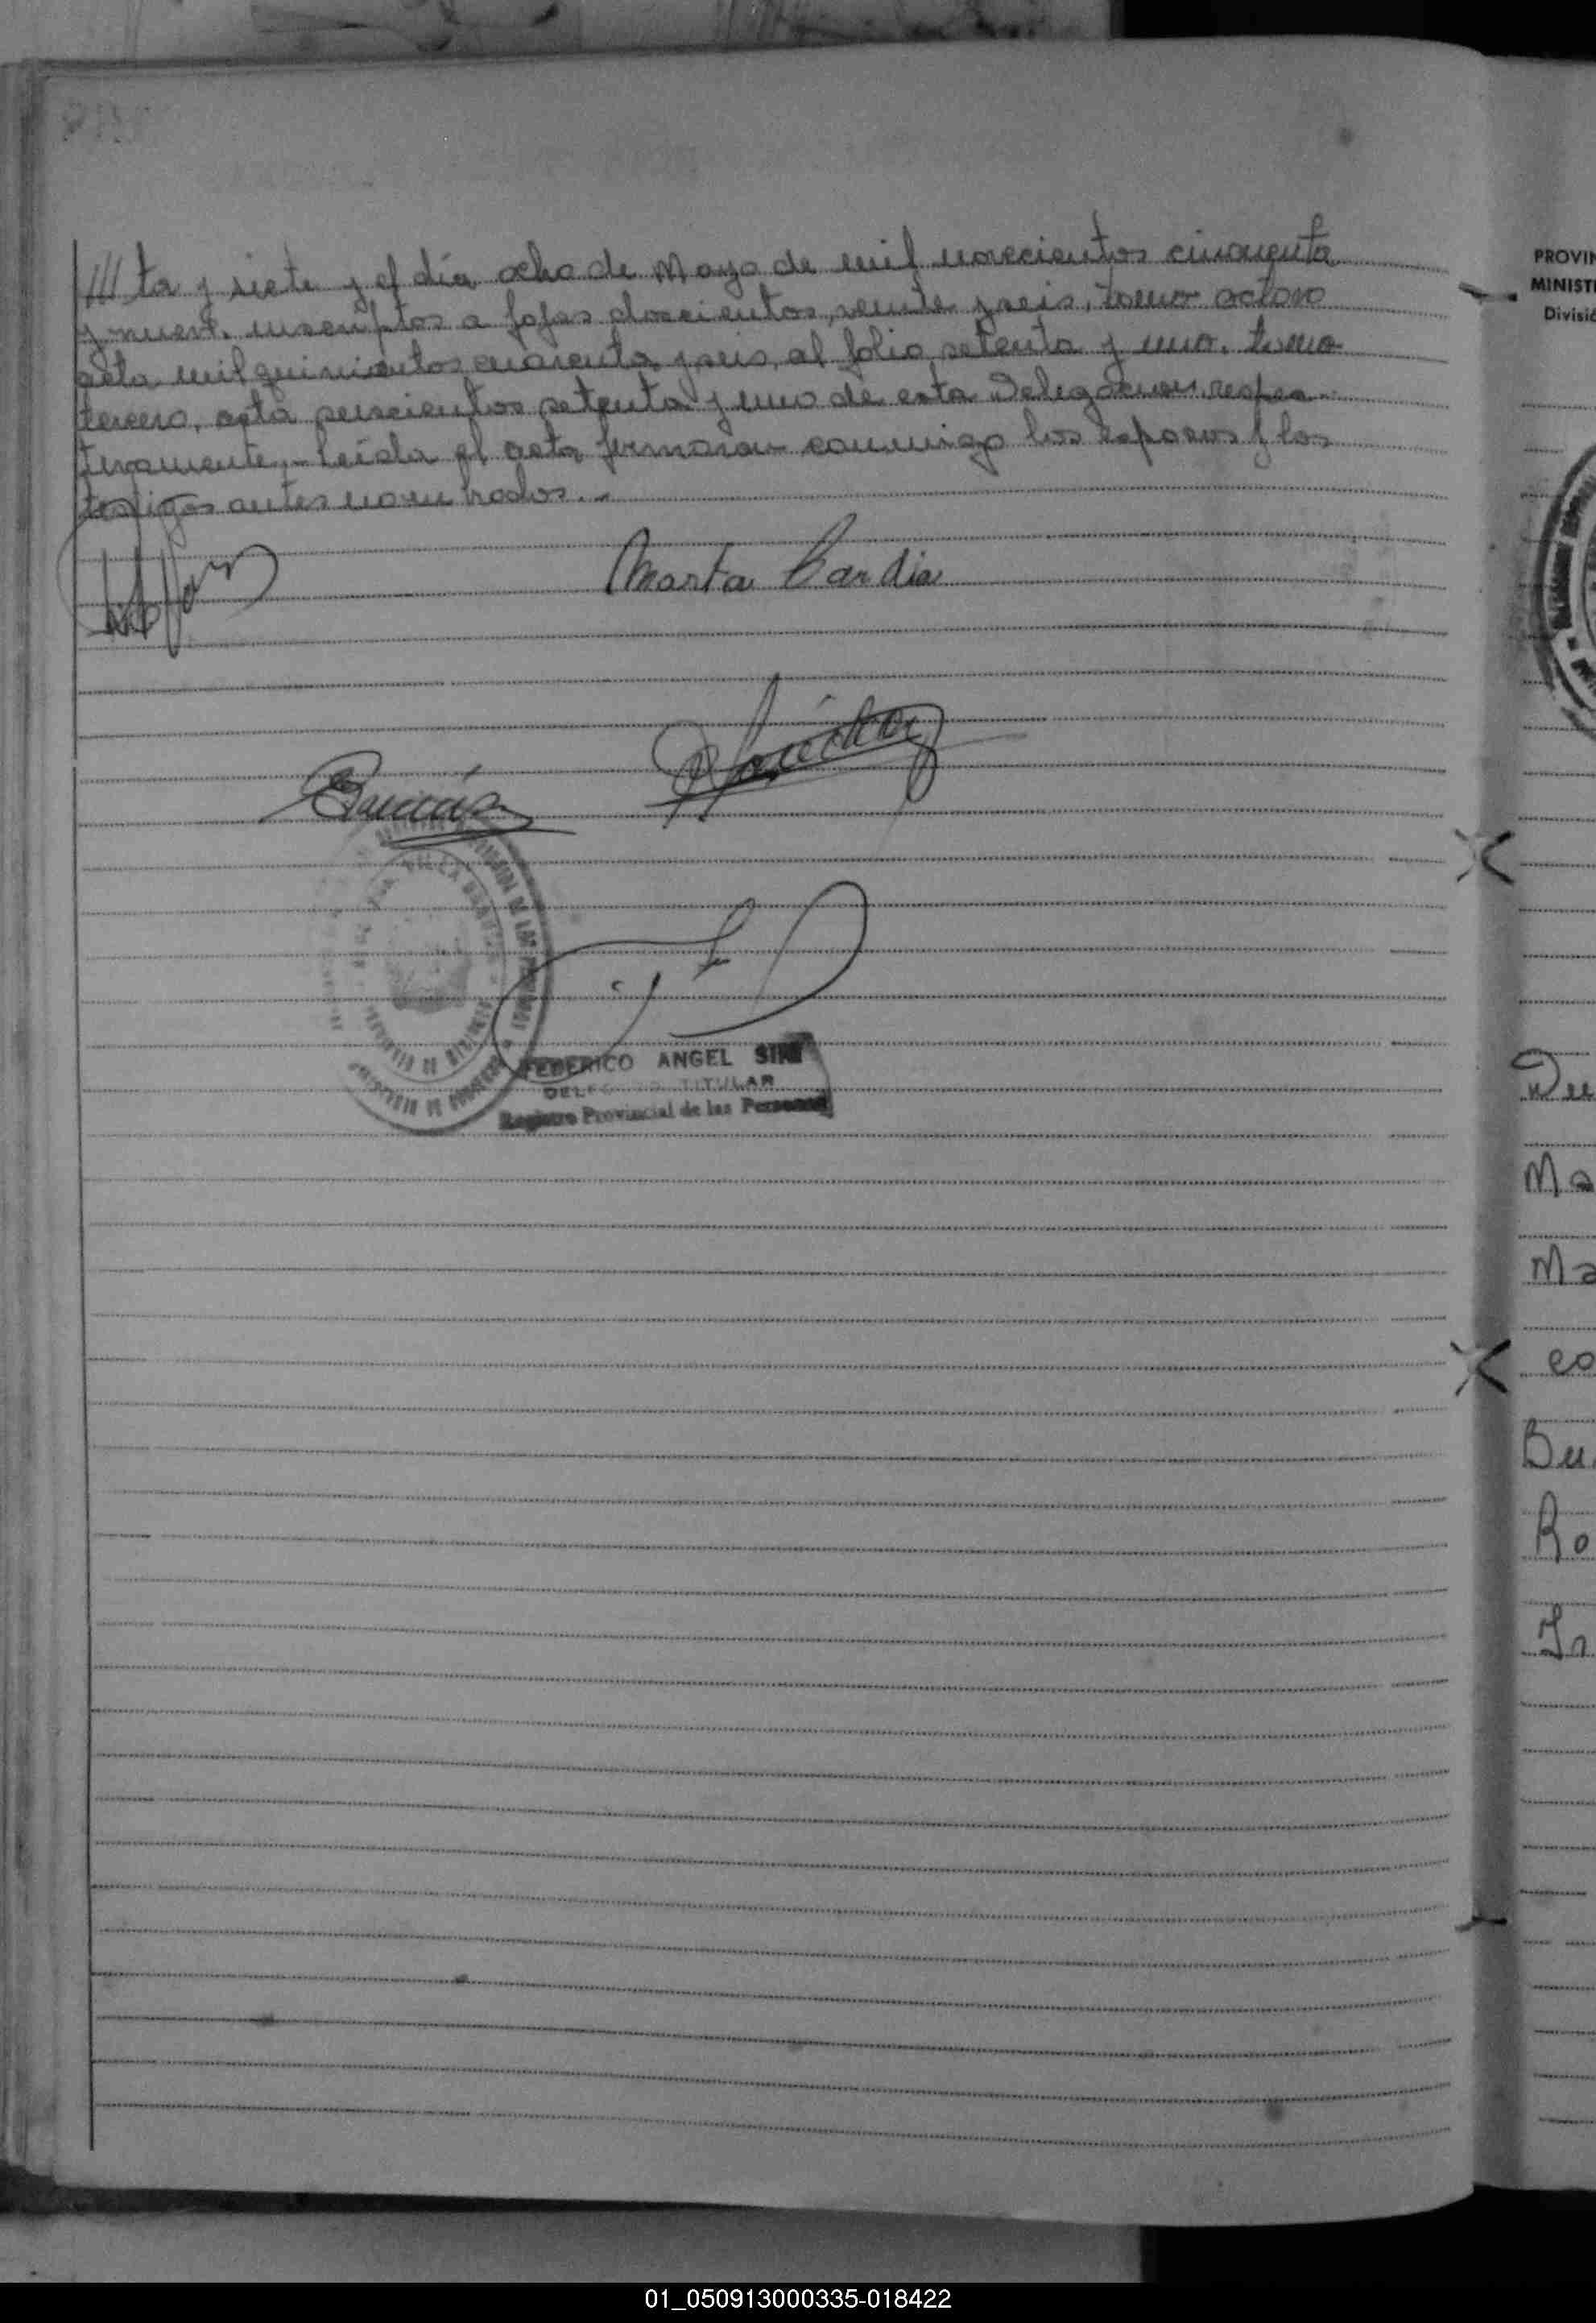 /// ta y siete y el día ocho de Mayo de mil novecientos cincuenta
y nueve, inscriptos a fojas doscientos, veinte y seis, tomo octavo
acta mil quinientos cuarenta y seis, al folio setenta y uno, tomo
tercero, acta seiscientos setenta y uno de esta Delegacion respec-
tivamente.- Leida el acta firmaron conmigo los esposos y los
testigos antes nombrados.-
Marta Cardia
FEDERICO ANGEL
DELEGADO TITULAR
Registro Provincial de las Personas
PROVIN
MINISTE
Divisió
Ma
Ma
co
Bu
Ro
01_050913000335-018422